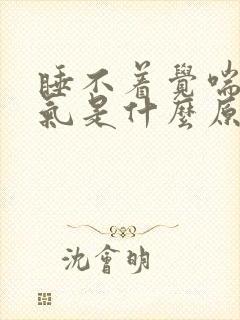 睡不着覺喘
氣是什麽原
沈會明